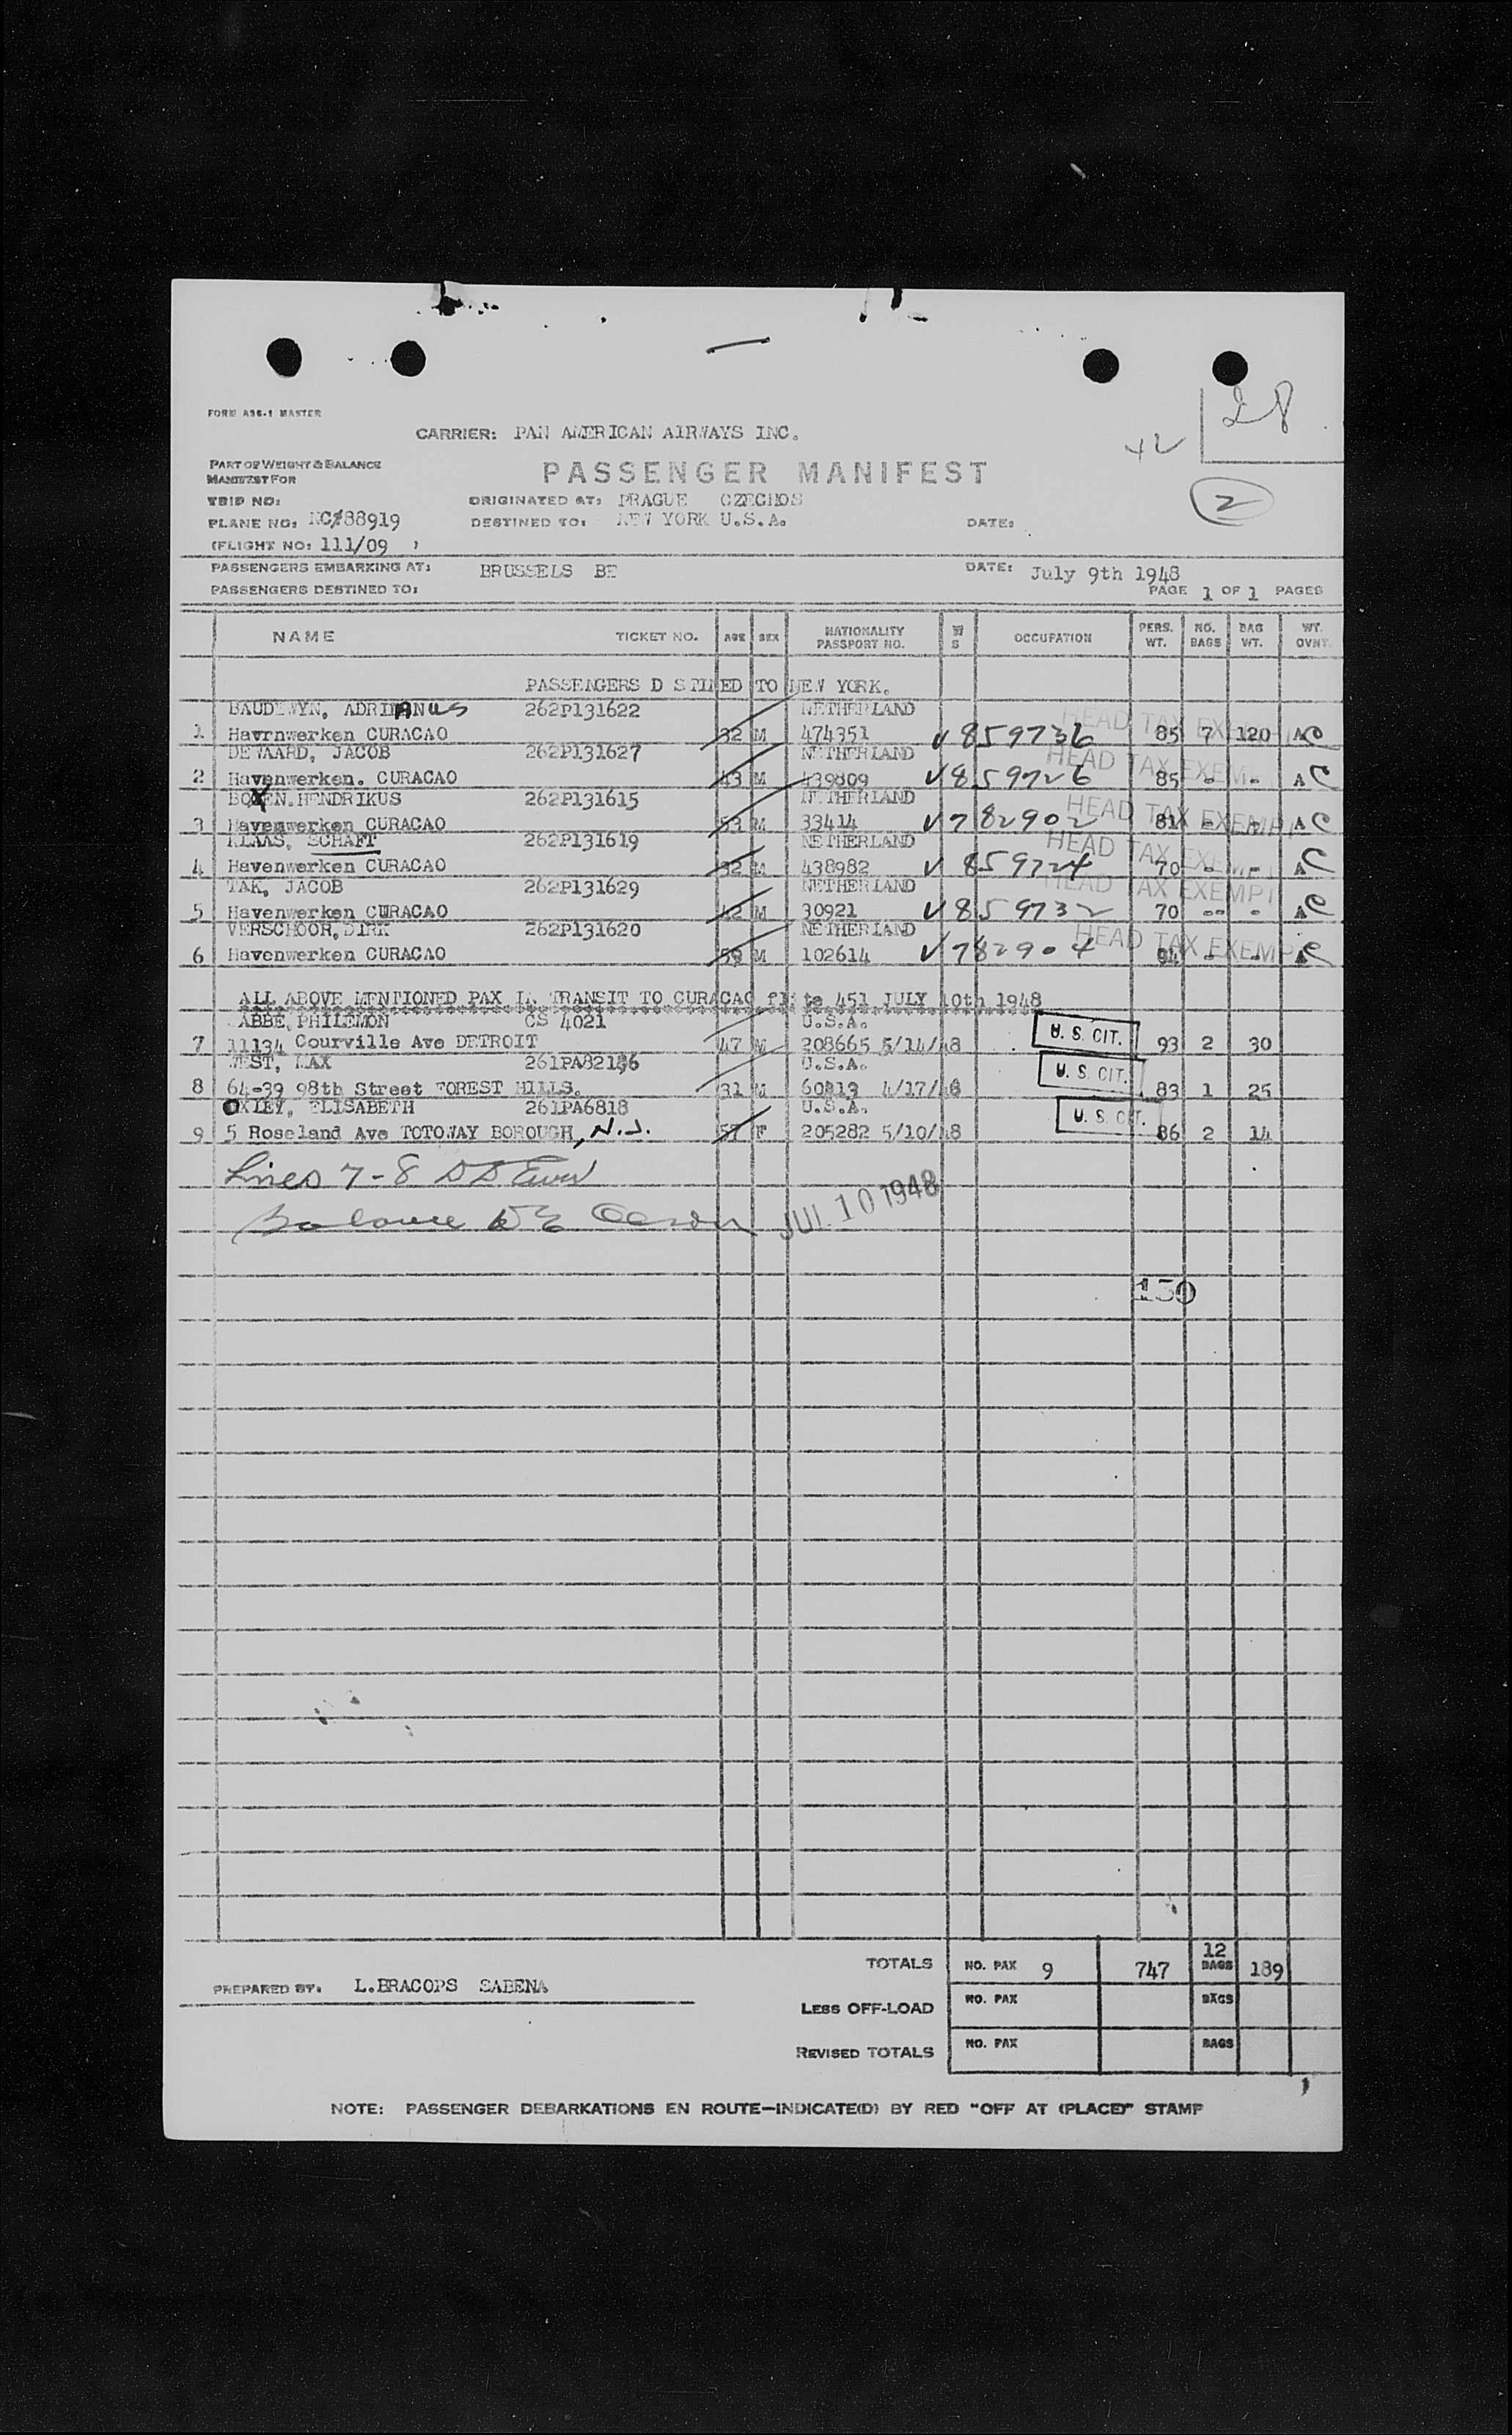 28
42
FORM A96-1 MASTER
CARRIER: PAN AMERICAN AIRWAYS INC.
PART OF WEIGHT & BALANCE
MANIFEST FOR
PASSENGER MANIFEST
2
TRIP NO:
ORIGINATED AT: PRAGUE CZECHOS
PLANE NO: NC/88919
DESTINED TO: NEW YORK U.S.A.
DATE:
(FLIGHT NO: 111/09 )
PASSENGERS EMBARKING AT: BRUSSELS BE
DATE: July 9th 1948
PASSENGERS DESTINED TO:
PAGE 1 OF 1 PAGES
NAME TICKET NO. AGE SEX NATIONALITY PASSPORT NO. OCCUPATION PERS. WT. NO. BAGS BAG WT. WT. OVNT.
PASSENGERS D STINED TO NEW YORK.
BAUDEWYN, ADRIANUS 262P131622 NETHERLAND HEAD TAX EXEMPT
1 Havrnwerken CURACAO 32 M 474351 ✓ 859736 85 7 120 AC
DEWAARD, JACOB 262P131627 NETHERLAND HEAD TAX EXEMPT
2 Havenwerken. CURACAO 43 M 439809 ✓ 859726 85 - - AC
BOXEN.HENDRIKUS 262P131615 NETHERLAND HEAD TAX EXEMPT
3 Havenwerken CURACAO 53 M 33414 ✓ 782902 81 - - AC
KLAAS, SCHAFT 262P131619 NETHERLAND HEAD TAX EXEMPT
4 Havenwerken CURACAO 32 M 438982 ✓ 859724 70 - - AC
TAK, JACOB 262P131629 NETHERLAND HEAD TAX EXEMPT
5 Havenwerken CURACAO 42 M 30921 ✓ 859732 70 -- - AC
VERSCHOOR, DIRK 262P131620 NETHERLAND HEAD TAX EXEMPT
6 Havenwerken CURACAO 59 M 102614 ✓ 782904 94 - - AC
ALL ABOVE MENTIONED PAX IN TRANSIT TO CURACAO flite 451 JULY 10th 1948
ABBE, PHILEMON CS 4021 U.S.A. U. S. CIT.
7 11134 Courville Ave DETROIT 47 M 208665 5/14/48 93 2 30
WEST, MAX 261PA82186 U.S.A. U. S. CIT.
8 64-39 98th Street FOREST HILLS. 31 M 60819 4/17/48 83 1 25
OXLEY, ELISABETH 261PA6818 U.S.A. U. S. CIT.
9 5 Roseland Ave TOTOWAY BOROUGH, N.J. 57 F 205282 5/10/48 86 2 14
Lines 7-8
Balance
JUL 10 1948
130
TOTALS NO. PAX 9 747 12 BAGS 189
PREPARED BY. L.BRACOPS SABENA
LESS OFF-LOAD NO. PAX BAGS
REVISED TOTALS NO. PAX BAGS
NOTE: PASSENGER DEBARKATIONS EN ROUTE—INDICATE(D) BY RED "OFF AT (PLACE)" STAMP